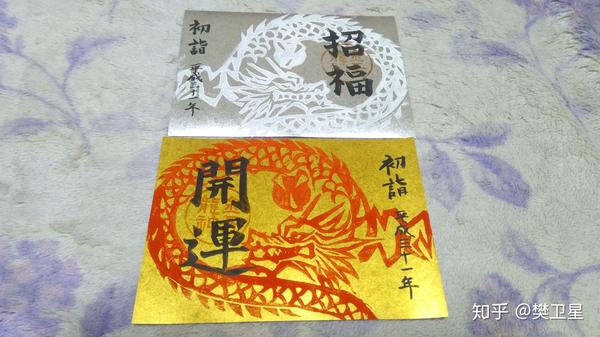 初詣
平成三十一年
招福
開運
初詣
平成三十一年
知乎 @樊卫星